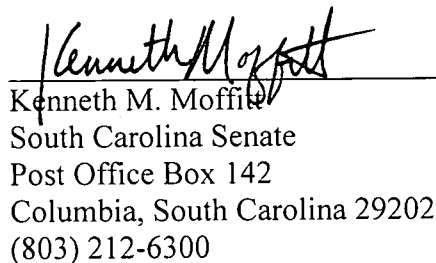 Kenneth Moffitt
Kenneth M. Moffitt
South Carolina Senate
Post Office Box 142
Columbia, South Carolina 29202
(803) 212-6300